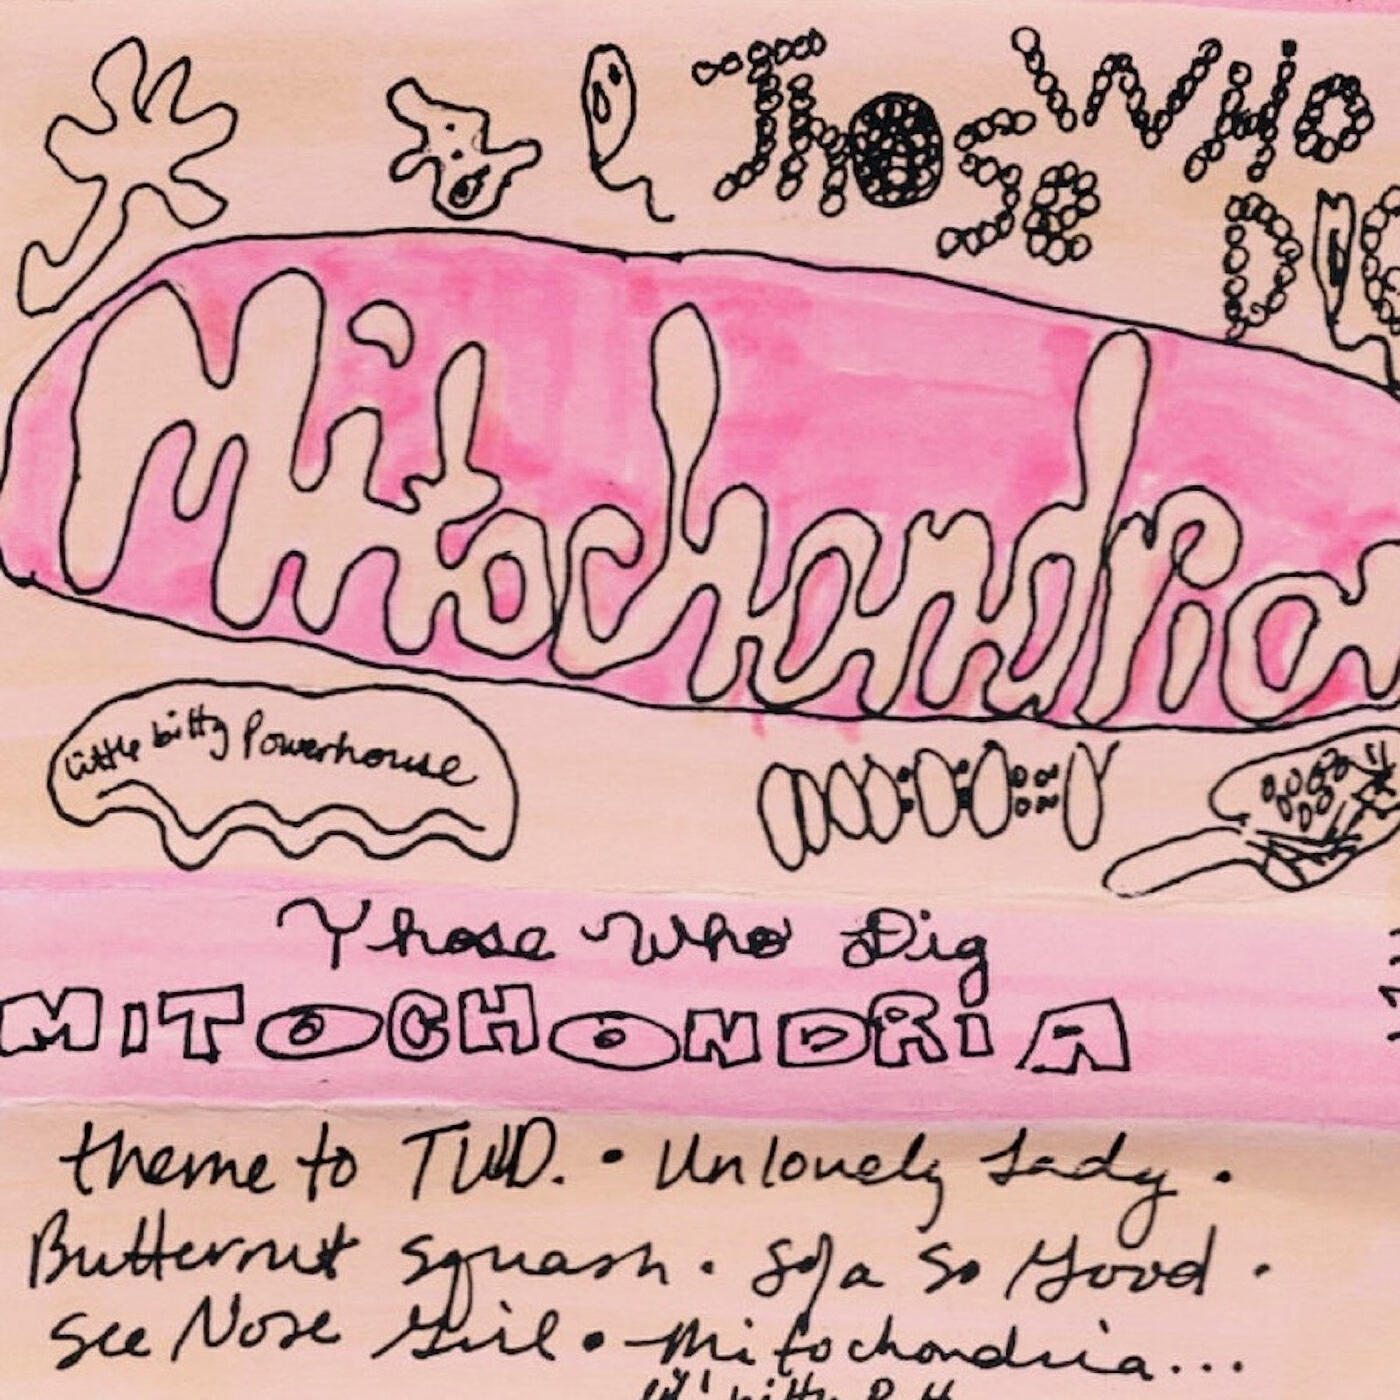 Those Who
DIG
Mitochondria
little bitty Powerhouse
Those Who Dig
MiTOCHONDRiA
theme to TWD. • Unlovely Lady .
Butternut Squash . Sofa So Good .
See Nose Girl • Mitochondria...
lil' bitty